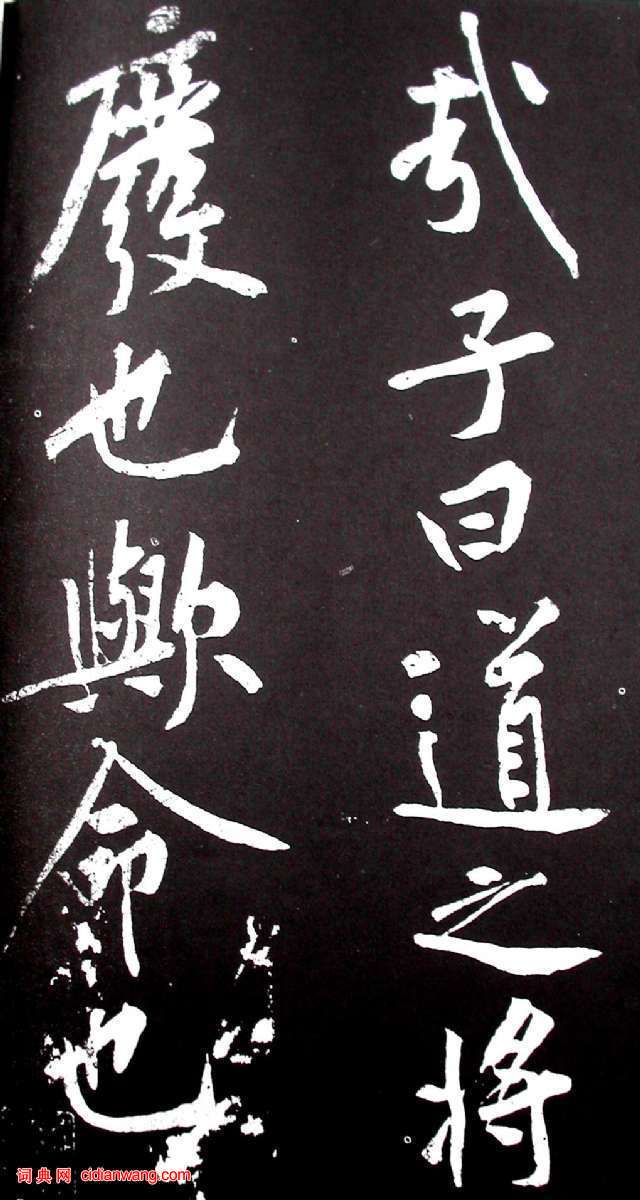 哉子曰道之将
廢也歟命也
词典网 cidianwang.com